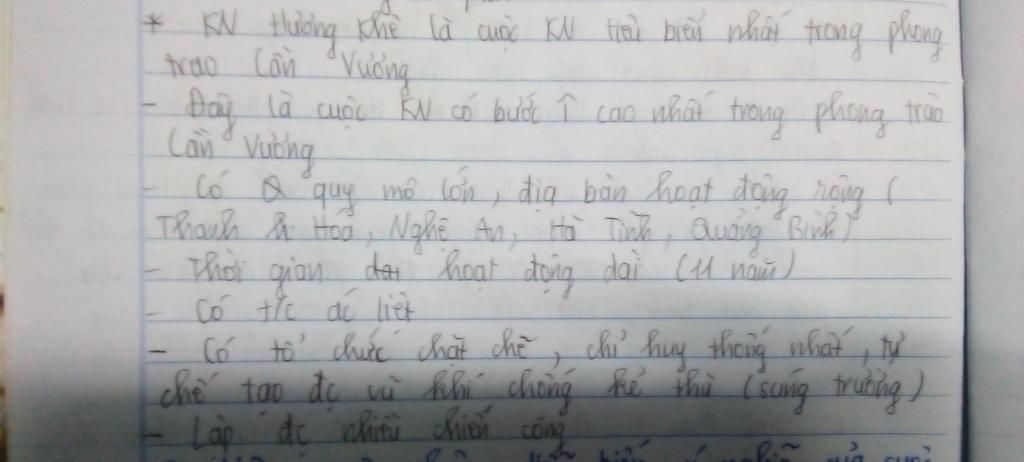 * KN Hương Khê là cuộc KN tiêu biểu nhất trong phong
trào Cần Vương
- Đây là cuộc KN có bước ↑ cao nhất trong phong trào
Cần Vương
- Có quy mô lớn, địa bàn hoạt động rộng (
Thanh Hoá, Nghệ An, Hà Tĩnh, Quảng Bình)
- Thời gian hoạt động dài (11 năm)
- Có t/c ác liệt
- Có tổ chức chặt chẽ, chỉ huy thống nhất, tự
chế tạo đc vũ khí chống kẻ thù (súng trường)
- Lập đc nhiều chiến công